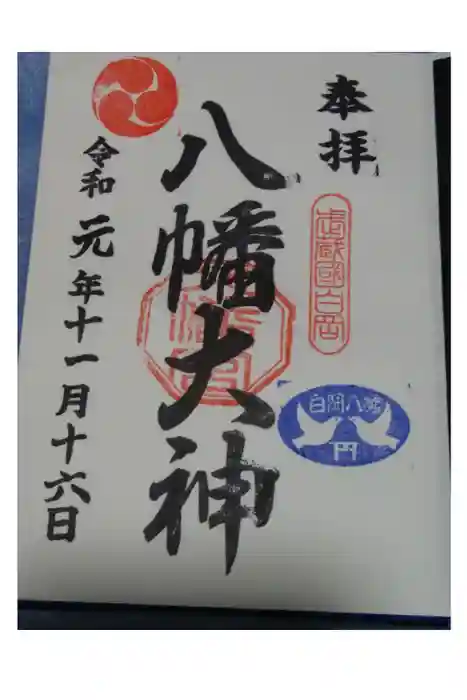 奉拝
武蔵國白岡
白岡八幡
円
八幡大神
令和元年十一月十六日